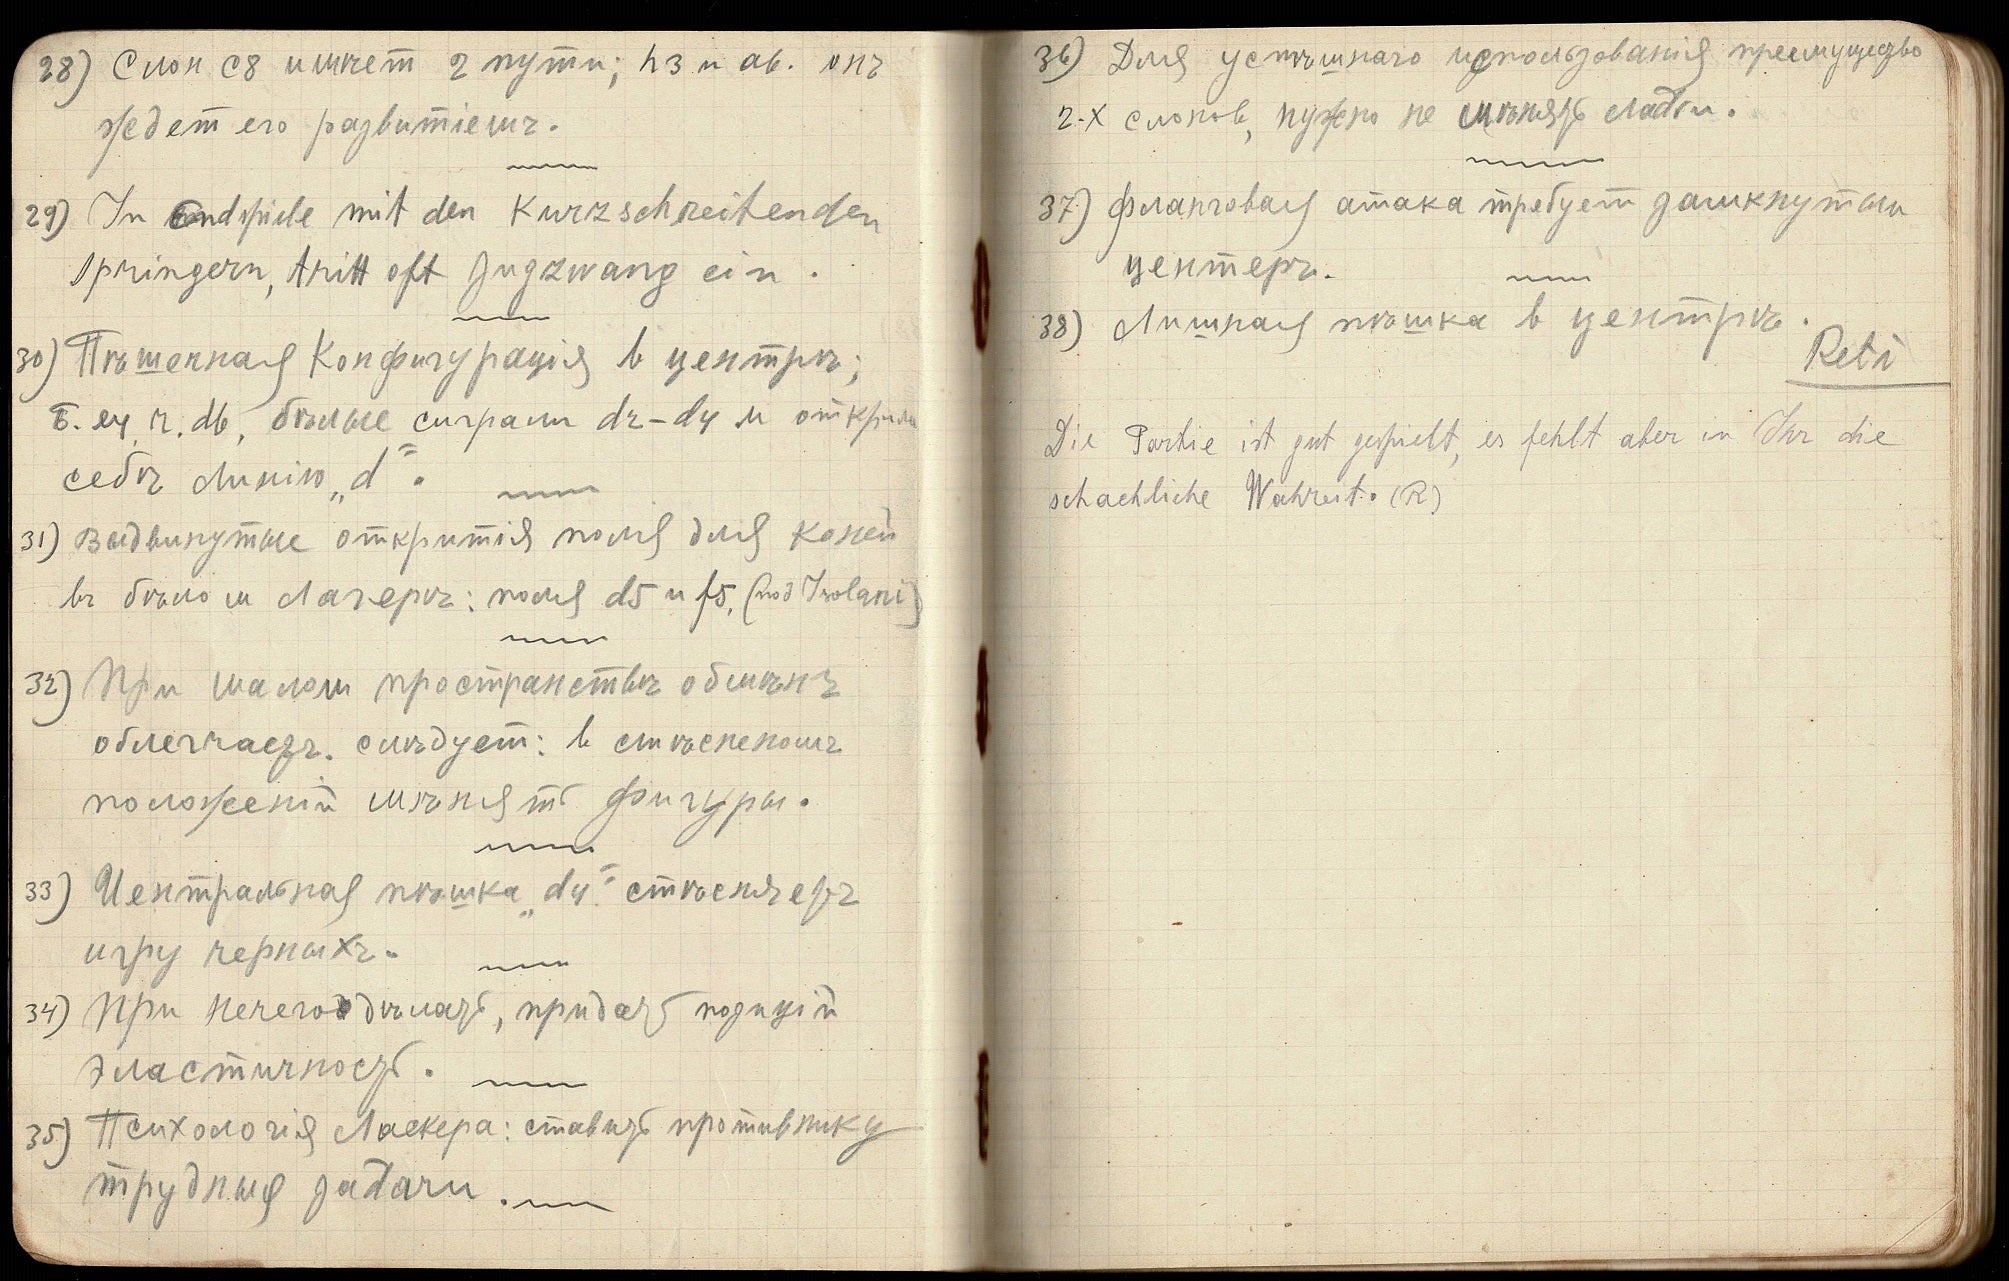 28) Слон c8 имѣет 2 пути; h3 и a6. онъ
ждет его развитіемъ.
29) In Endspiele mit den Kurzschreitenden
Springern, tritt oft Zugzwang ein.
30) Пѣшечная Конфигурація в центрѣ;
Б. e4, ч. d6, бѣлые сиграли d2-d4 и открыли
себѣ линію „d“.
31) Выдвинутые открытія поля для коней
въ бѣлом лагерѣ: поля d5 и f5, (под Isolani)
32) При малом пространствѣ обмѣнъ
облегчаетъ. слѣдует: в стѣсненомъ
положеній мѣнять фигуры.
33) Центральная пѣшка „d4“ стѣсняетъ
игру черныхъ.
34) При нечего дѣлать, придать позицій
эластичность.
35) Психологія Ласкера: ставить противнику
трудныя задачи.
36) Для успѣшнаго использованія преимущество
2-х слонов, нужно не мѣнять ладьи.
37) фланговая атака требует замкнутый
центеръ.
38) Лишная пѣшка в центрѣ.
Reti
Die Partie ist gut gespielt, es fehlt aber in Ihr die
schachliche Wahreit. (R)